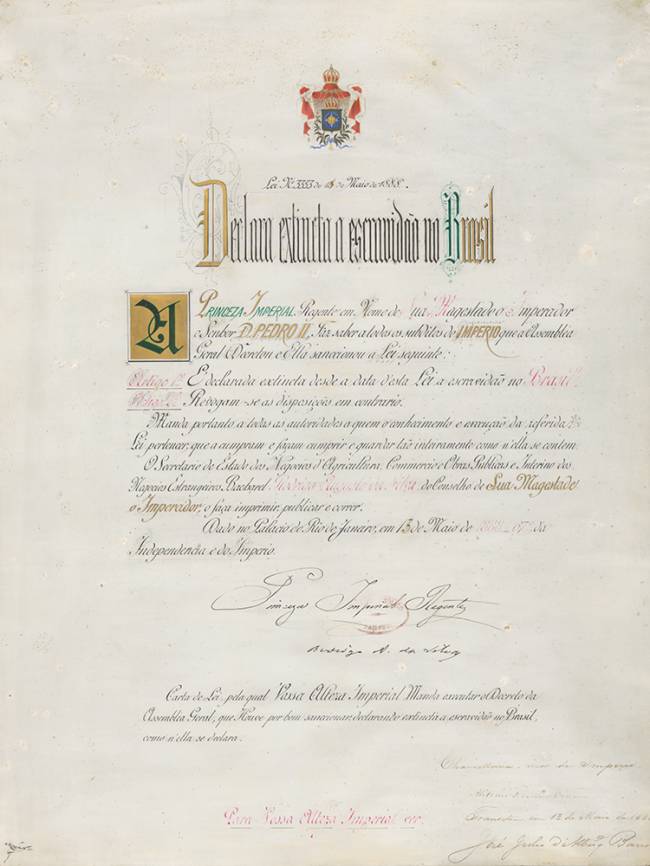 Lei Nº 3353 de 13 de Maio de 1888.
Declara extincta a escravidão no Brasil
A PRINCEZA IMPERIAL Regente em Nome de Sua Magestade o Imperador
o Senhor D. PEDRO II, Faz saber a todos os subditos do IMPERIO que a Assemblea
Geral Decretou e Ella sanccionou a Lei seguinte:
Artigo 1º É declarada extincta desde a data d'esta Lei a escravidão no Brasil.
Artigo 2º Revogam-se as disposições em contrario.
Manda portanto a todas as autoridades a quem o conhecimento e execução da referida
Lei pertencer, que a cumpram e façam cumprir e guardar tão inteiramente como n'ella se contem.
O Secretario de Estado dos Negocios d'Agricultura, Commercio e Obras Publicas e Interino dos
Negocios Estrangeiros, Bacharel Rodrigo Augusto da Silva, do Conselho de Sua Magestade
o Imperador, o faça imprimir, publicar e correr.
Dado no Palacio do Rio de Janeiro, em 13 de Maio de 1888, 67º da
Independencia e do Imperio.
Princeza Imperial Regente
Rodrigo A. da Silva
Carta de Lei, pela qual Vossa Alteza Imperial Manda executar o Decreto da
Assemblea Geral, que Houve por bem sanccionar, declarando extincta a escravidão no Brasil,
como n'ella se declara.
Para Vossa Alteza Imperial ver.
Chancellaria mór do Imperio
Transitou em 13 de Maio de
José Julio d'Albuq Barros